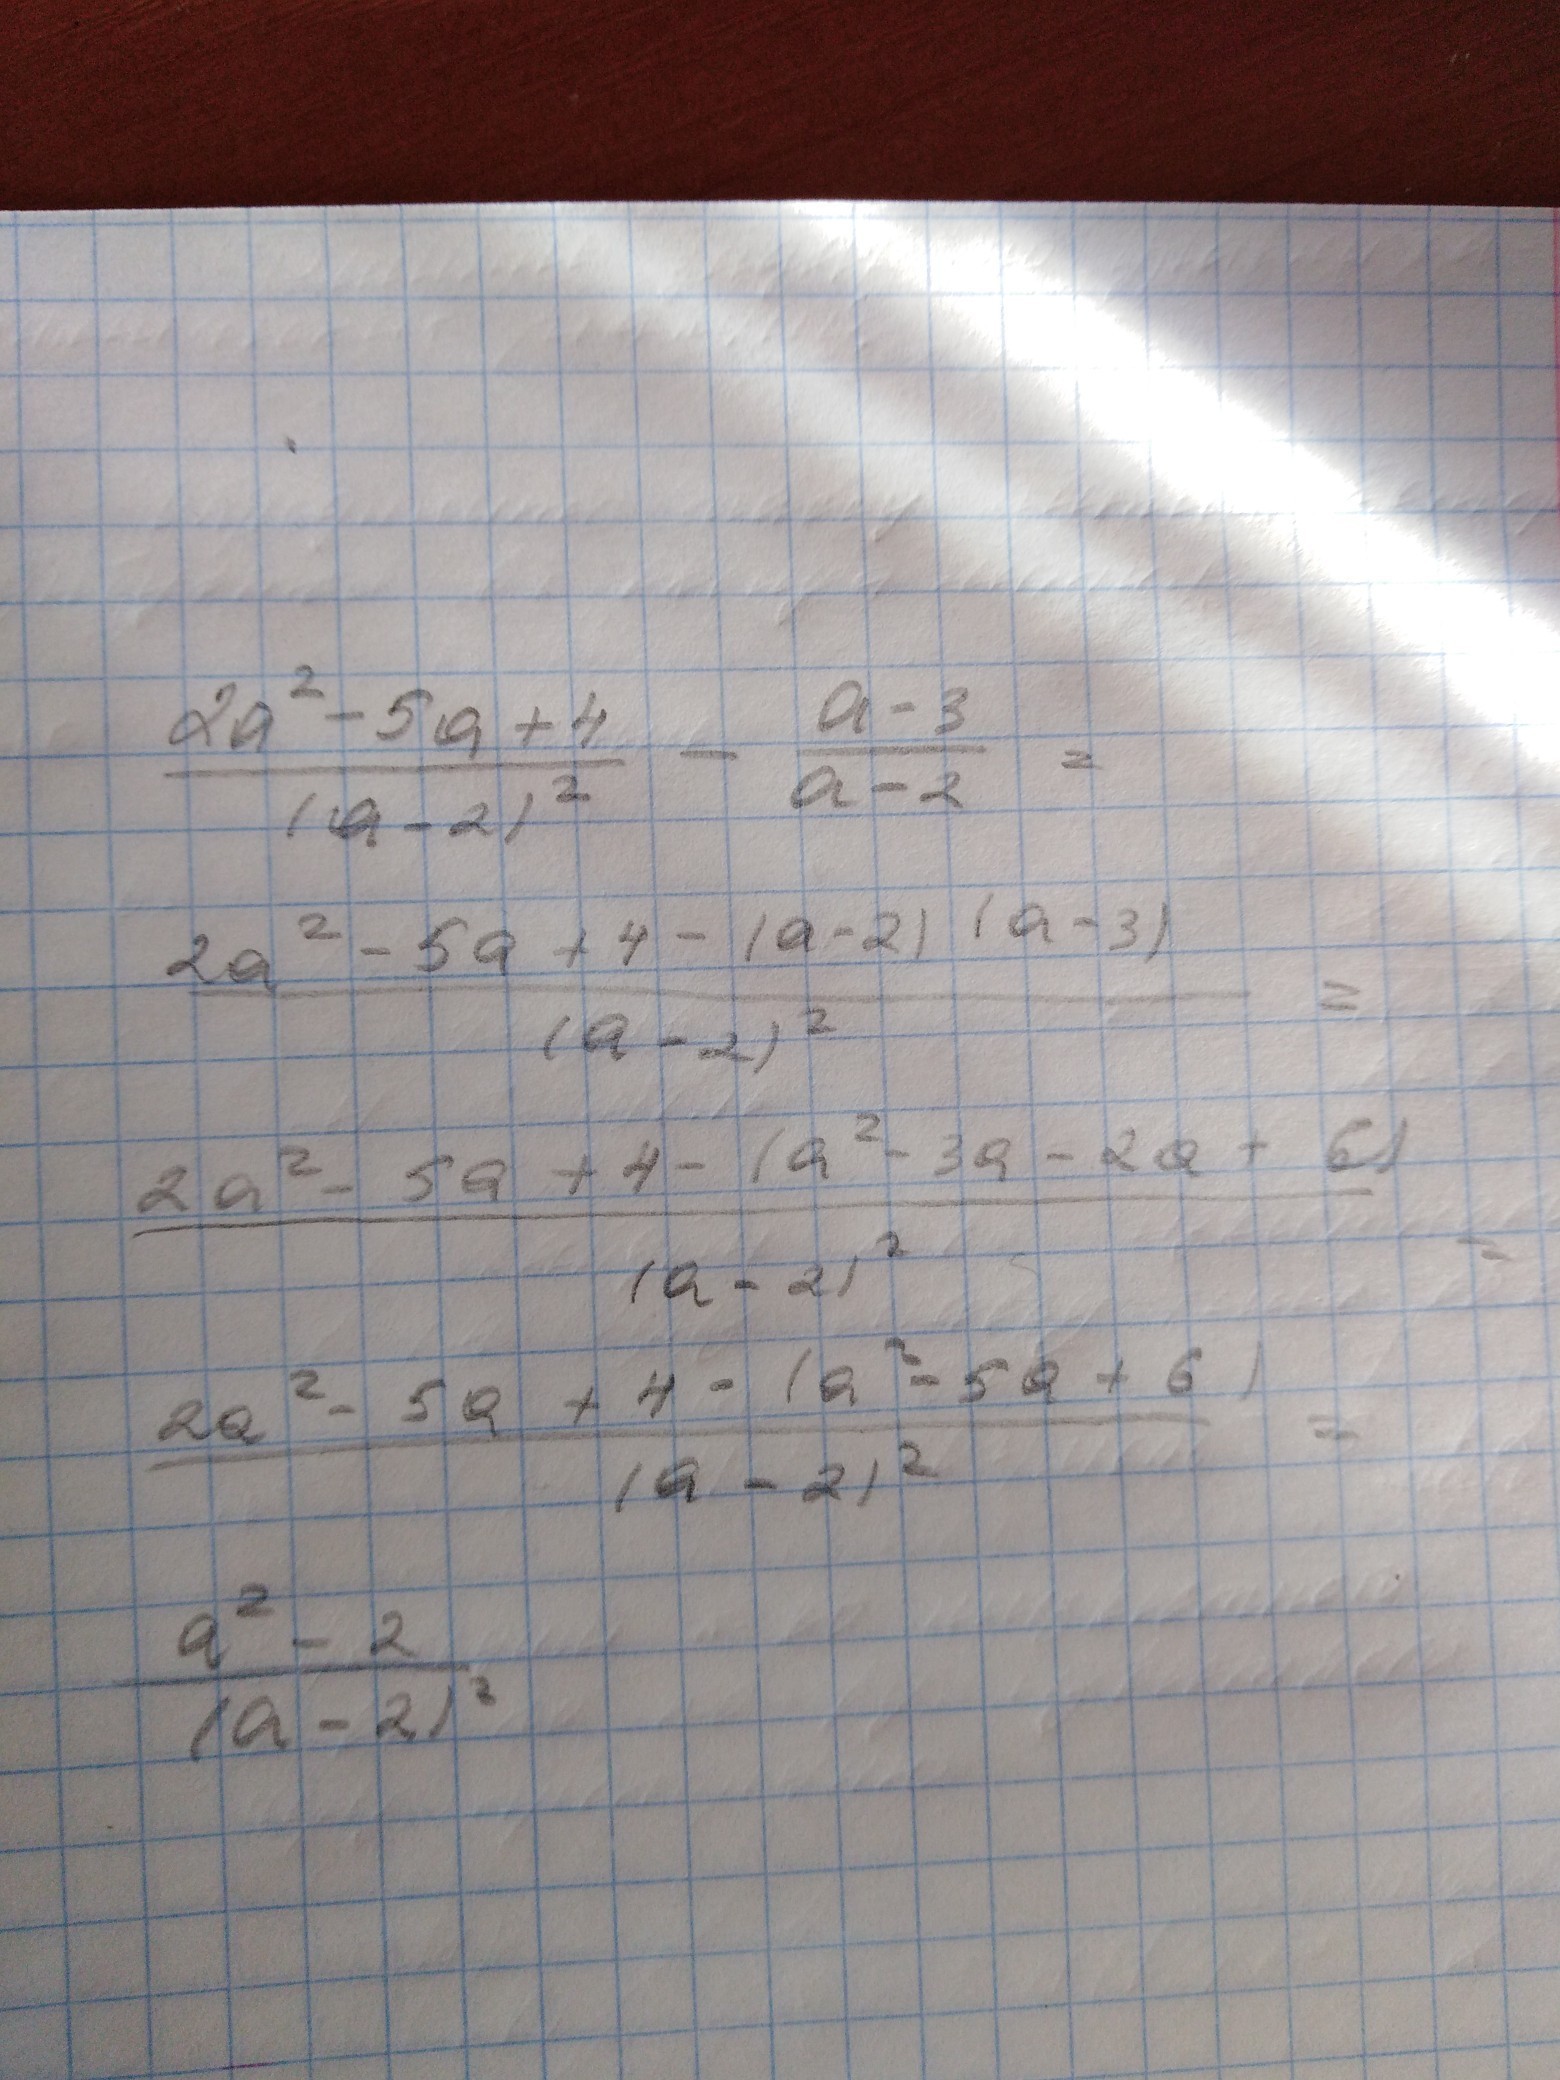 (2a² - 5a + 4)/(a - 2)² - (a - 3)/(a - 2) =
(2a² - 5a + 4 - (a - 2)(a - 3))/(a - 2)² =
(2a² - 5a + 4 - (a² - 3a - 2a + 6))/(a - 2)² =
(2a² - 5a + 4 - (a² - 5a + 6))/(a - 2)² =
(a² - 2)/(a - 2)²